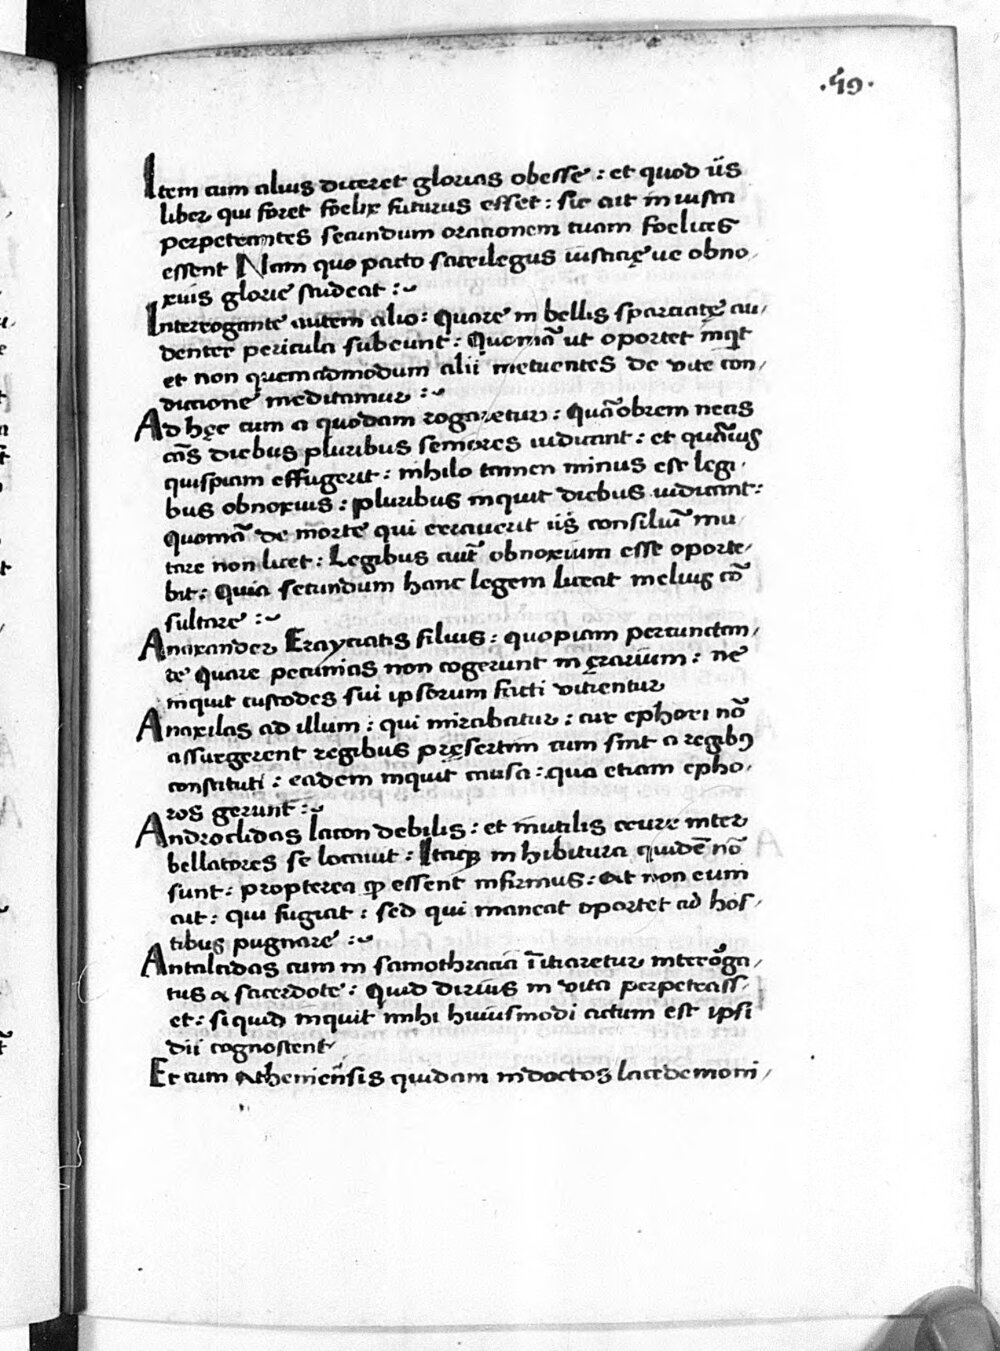 .49.
Item cum alius diceret glorias obesse: et quod iis
liber qui foret foelix futurus esset: sic ait iniusta
perpetrantes secundum orationem tuam foelices
essent Nam quo pacto sacrilegus iusticię ue obno,
xius glorie studeat :~
Interrogante autem alio: Quare in bellis sparciatę au,
denter pericula subeunt: Quoniā ut oportet inqt
et non quemadmodum alii metuentes de vite con,
dicione meditamur :~
Ad hęc cum a quodam rogaretur: Quāobrem necis
cās diebus pluribus seniores iudicant: et quāuis
quispiam effugerit: nihilo tamen minus est legi,
bus obnoxius: pluribus inquit diebus iudicant:
Quoniā de morte qui erraverit iis consiliū mu
tare non licet: Legibus aut̄ obnoxium esse oporte,
bit: Quia secundum hanc legem liceat melius cō
sultare :~
Anaxander Eraycratis filius: quopiam percunctan,
te Quare pecunias non cogerunt in ęrarium: ne
inquit custodes sui ipsorum facti vitientur
Anaxilas ad illum: qui mirabatur: cur ephori nō
assurgerent regibus pręsertim cum sint a regibꝰ
constituti: eadem inquit causa: qua etiam epho,
ros gerunt :~
Androclidas lacon debilis: et mutilis crure inter
bellatores se locauit: Itaqꝫ inhibitura quidē nō
sunt: propterea ꝙ essent infirmus: At non eum
ait: qui fugiat: sed qui maneat oportet ad hos,
tibus pugnare :~
Antalcidas cum in samothracia ītiaretur interroga,
tus a sacerdote: Quid dirius in vita perpetrass,
et: siquid inquit mihi huiusmodi actum est ipsi
dii cognoscent
Et cum Atheniēnsis quidam indoctos lacedemoni,